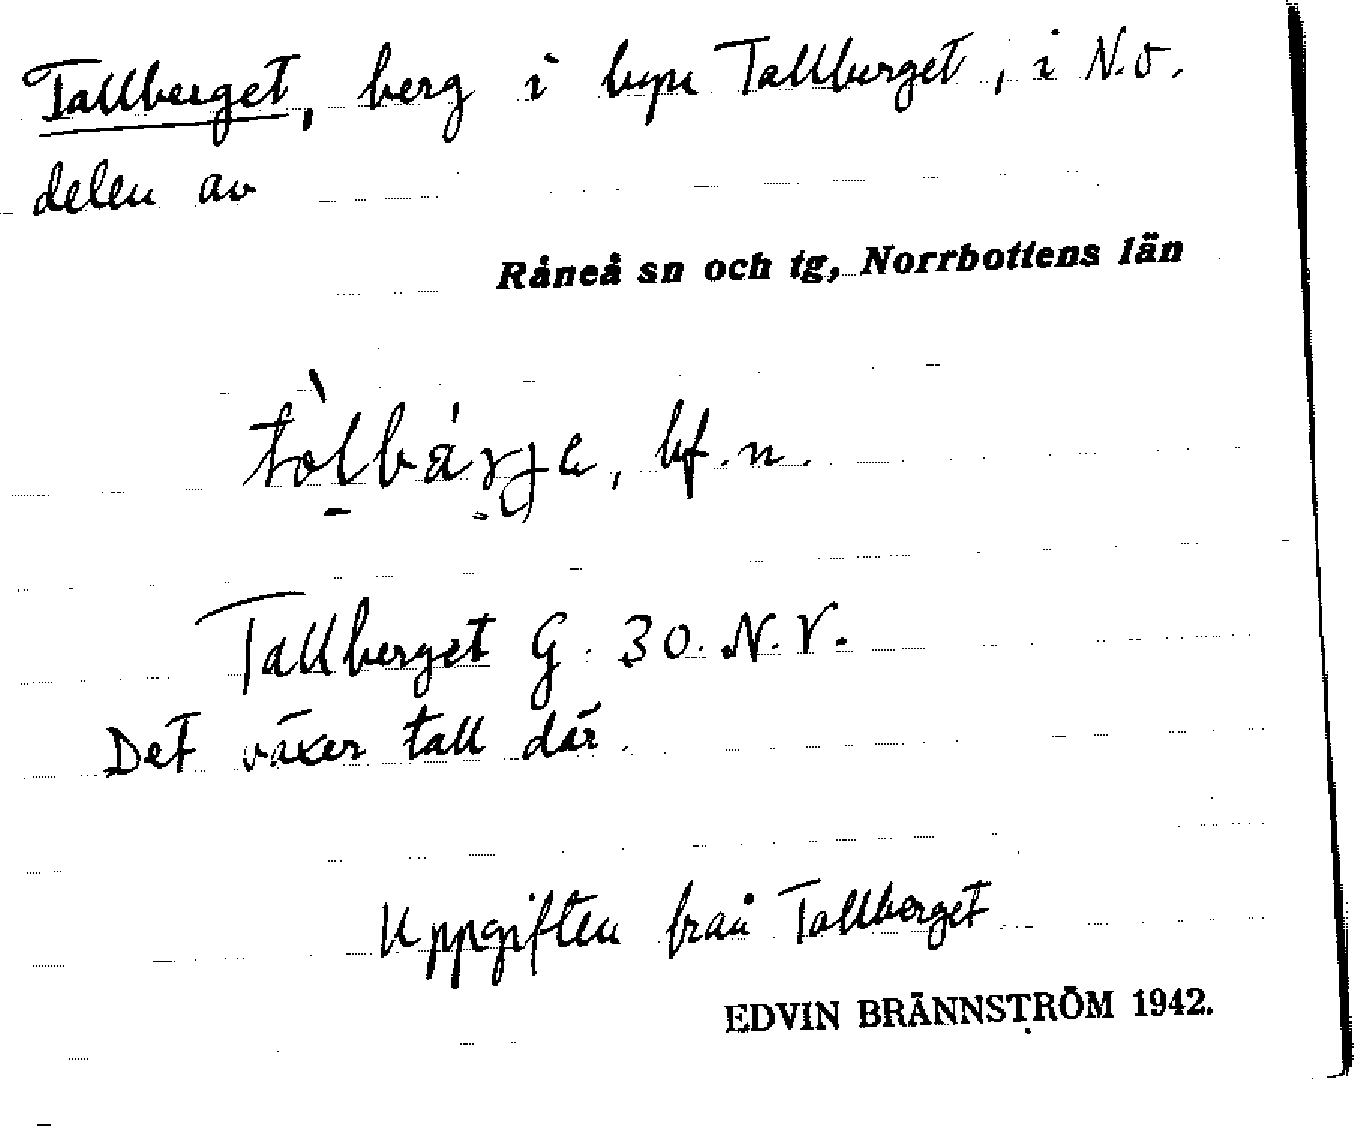 Tallberget, berg i byn Tallberget, i N.O.
delen av
Råneå sn och tg, Norrbottens län
bf. n.
Tallberget G. 30. N.V.
Det växer tall där.
Uppgiften från Tallberget
EDVIN BRÄNNSTRÖM 1942.